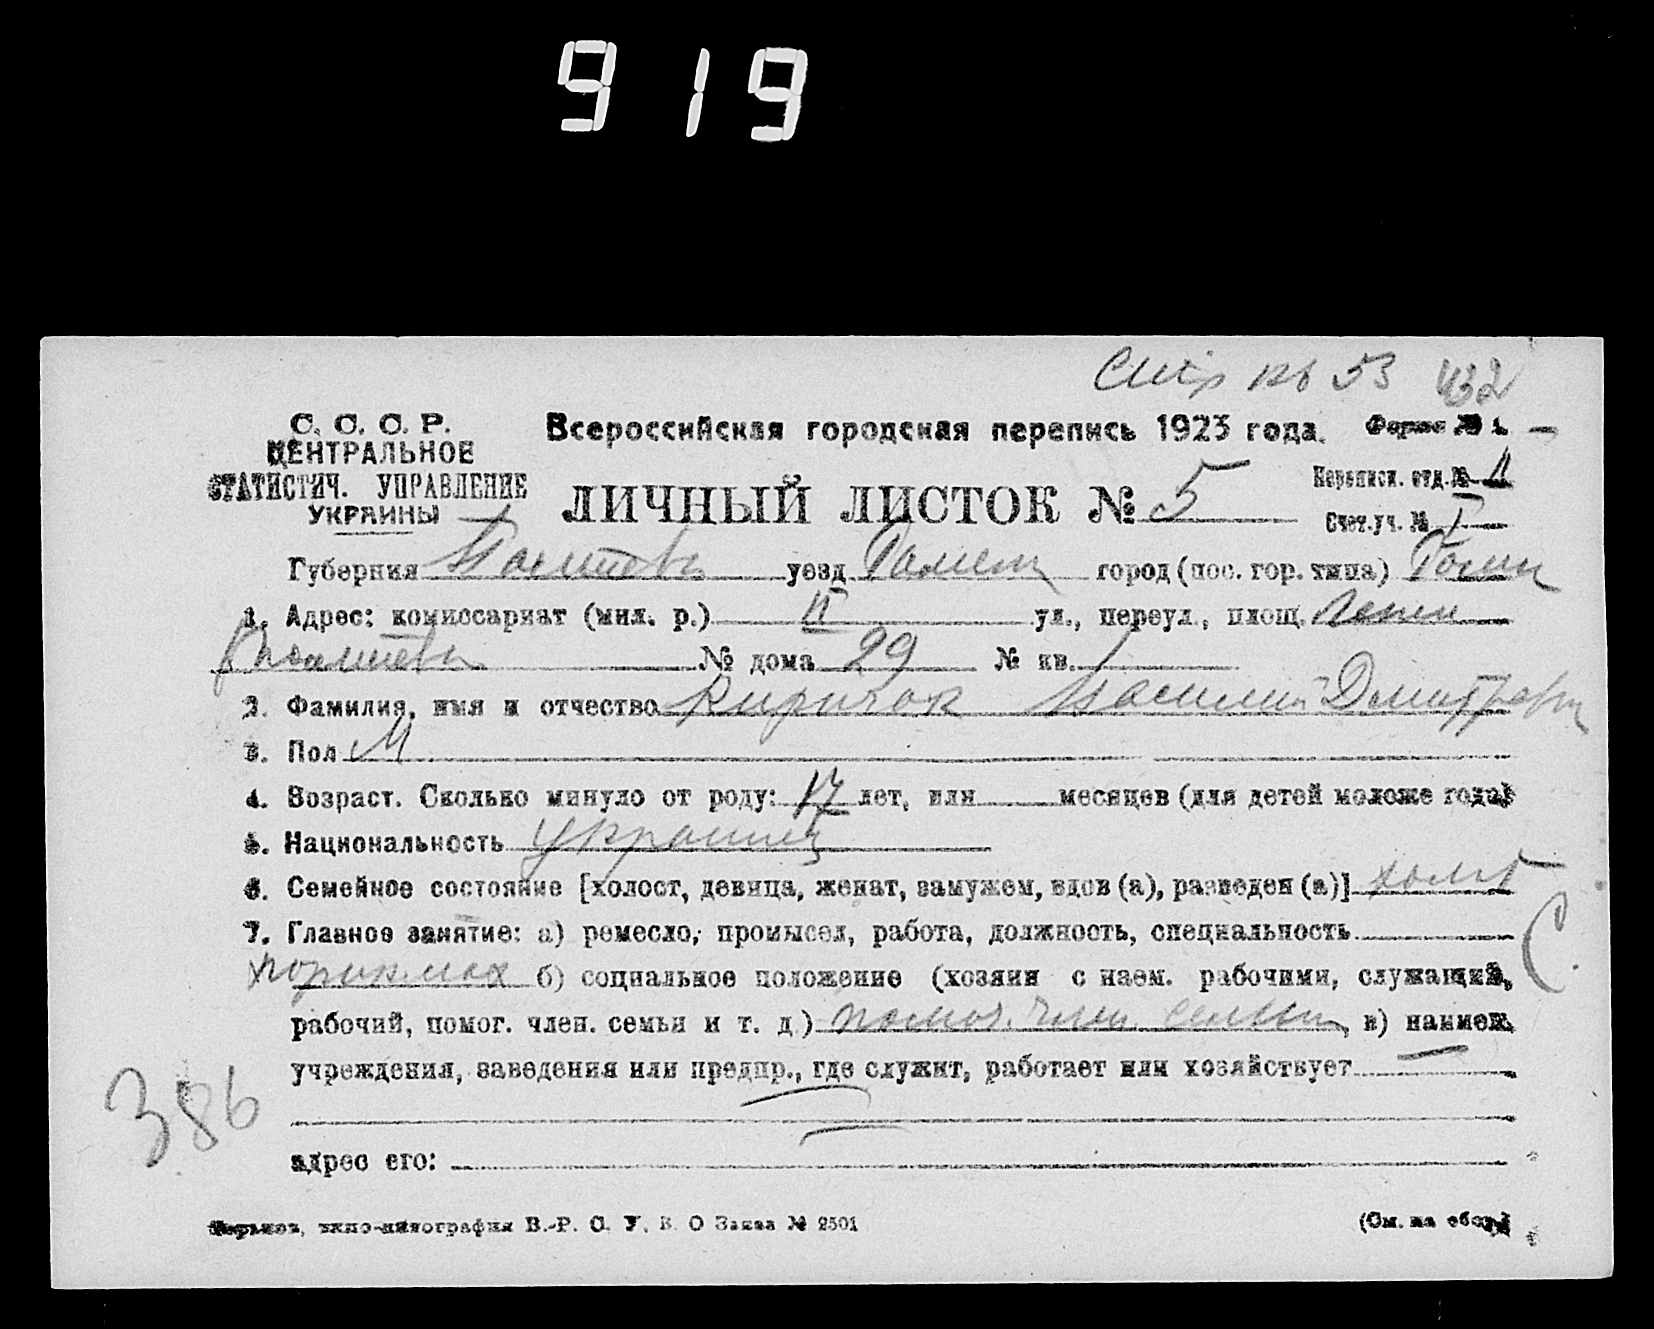 919
432
С. С. С. Р.
ЦЕНТРАЛЬНОЕ
СТАТИСТИЧ. УПРАВЛЕНИЕ
УКРАИНЫ
Всероссийская городская перепись 1923 года. Форма № 1.
ЛИЧНЫЙ ЛИСТОК № 5
Переписн. отд. №
Счет. уч. № I
Губерния Полтавск уезд Ромен город (пос. гор. типа) Ромен
1. Адрес: комиссариат (мил. р.) II ул., переул., площ. Ленин
№ дома 29 № кв. 1
2. Фамилия, имя и отчество Киричок Василий Дмитрович
3. Пол М
4. Возраст. Сколько минуло от роду: 17 лет, или месяцев (для детей моложе года)
5. Национальность Украинец
6. Семейное состояние [холост, девица, женат, замужем, вдов (а), разведен (а)] холост
7. Главное занятие: а) ремесло, промысел, работа, должность, специальность
б) социальное положение (хозяин с наем. рабочими, служащий,
рабочий, помог. член. семьи и т. д.) помог. член. семьи, в) наимен.
учреждения, заведения или предпр., где служит, работает или хозяйствует
адрес его:
386
Харьков, типо-цинография В.-Р. С. У. В. О Заказ № 2501
(См. на обор.)